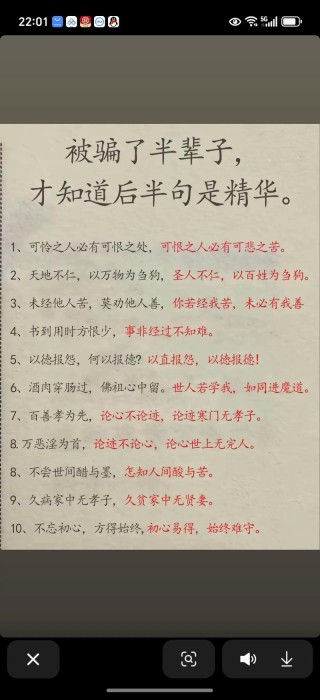 22:01
5G
被骗了半辈子，
才知道后半句是精华。
1、可怜之人必有可恨之处，可恨之人必有可悲之苦。
2、天地不仁，以万物为刍狗，圣人不仁，以百姓为刍狗。
3、未经他人苦，莫劝他人善，你若经我苦，未必有我善
4、书到用时方恨少，事非经过不知难。
5、以德报怨，何以报德？以直报怨，以德报德！
6、酒肉穿肠过，佛祖心中留。世人若学我，如同进魔道。
7、百善孝为先，论心不论迹，论迹寒门无孝子。
8.万恶淫为首，论迹不论心，论心世上无完人。
8、不尝世间醋与墨，怎知人间酸与苦。
9、久病家中无孝子，久贫家中无贤妻。
10、不忘初心，方得始终,初心易得，始终难守。